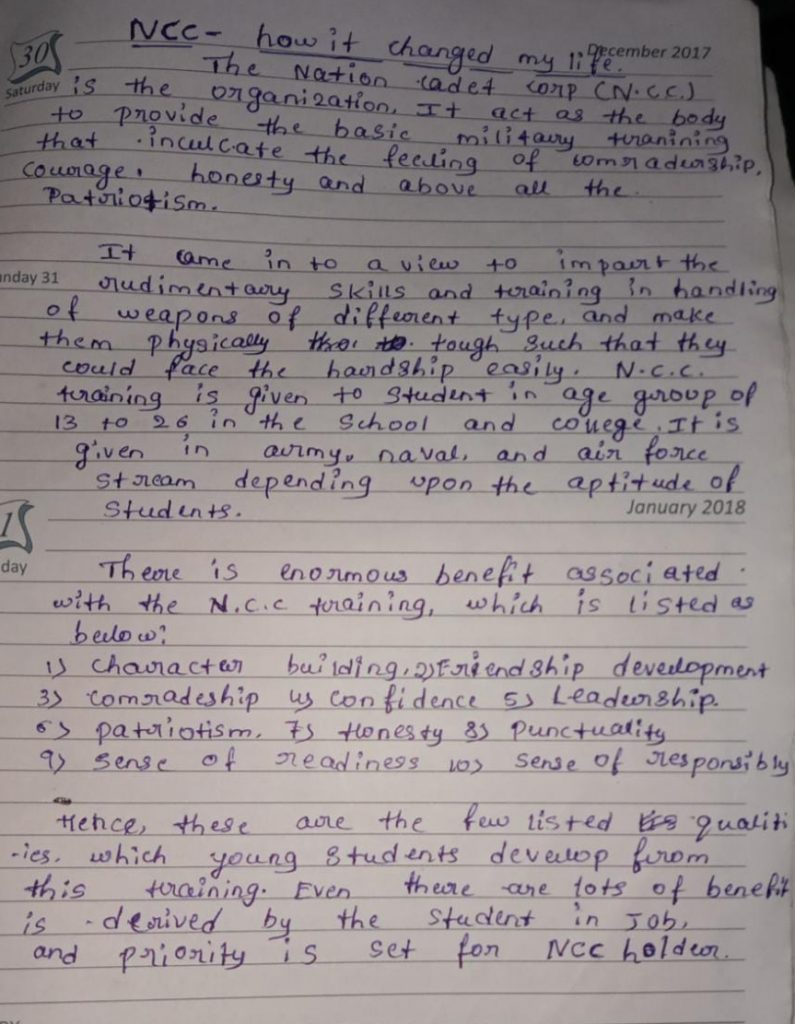 NCC - how it changed my life.
30 December 2017
Saturday
The Nation cadet corp (N.C.C.)
is the organization. It act as the body
to provide the basic military tranining
that inculcate the feeling of comradership,
courage, honesty and above all the
Patriotism.
It came in to a view to impart the
nday 31
rudimentary skills and training in handling
of weapons of different type, and make
them physically tough such that they
could face the hardship easily. N.C.C.
training is given to student in age group of
13 to 26 in the school and college. It is
given in army, naval, and air force
stream depending upon the aptitude of
students.
1 January 2018
day
There is enormous benefit associated
with the N.C.C training, which is listed as
below:
1) character building, 2) Friendship development
3) comradeship 4) confidence 5) Leadership.
6) patriotism. 7) Honesty 8) Punctuality
9) sense of readiness 10) sense of responsibly
Hence, these are the few listed qualiti
-ies. which young students develop from
this training. Even there are lots of benefit
is derived by the student in Job,
and priority is set for NCC holder.